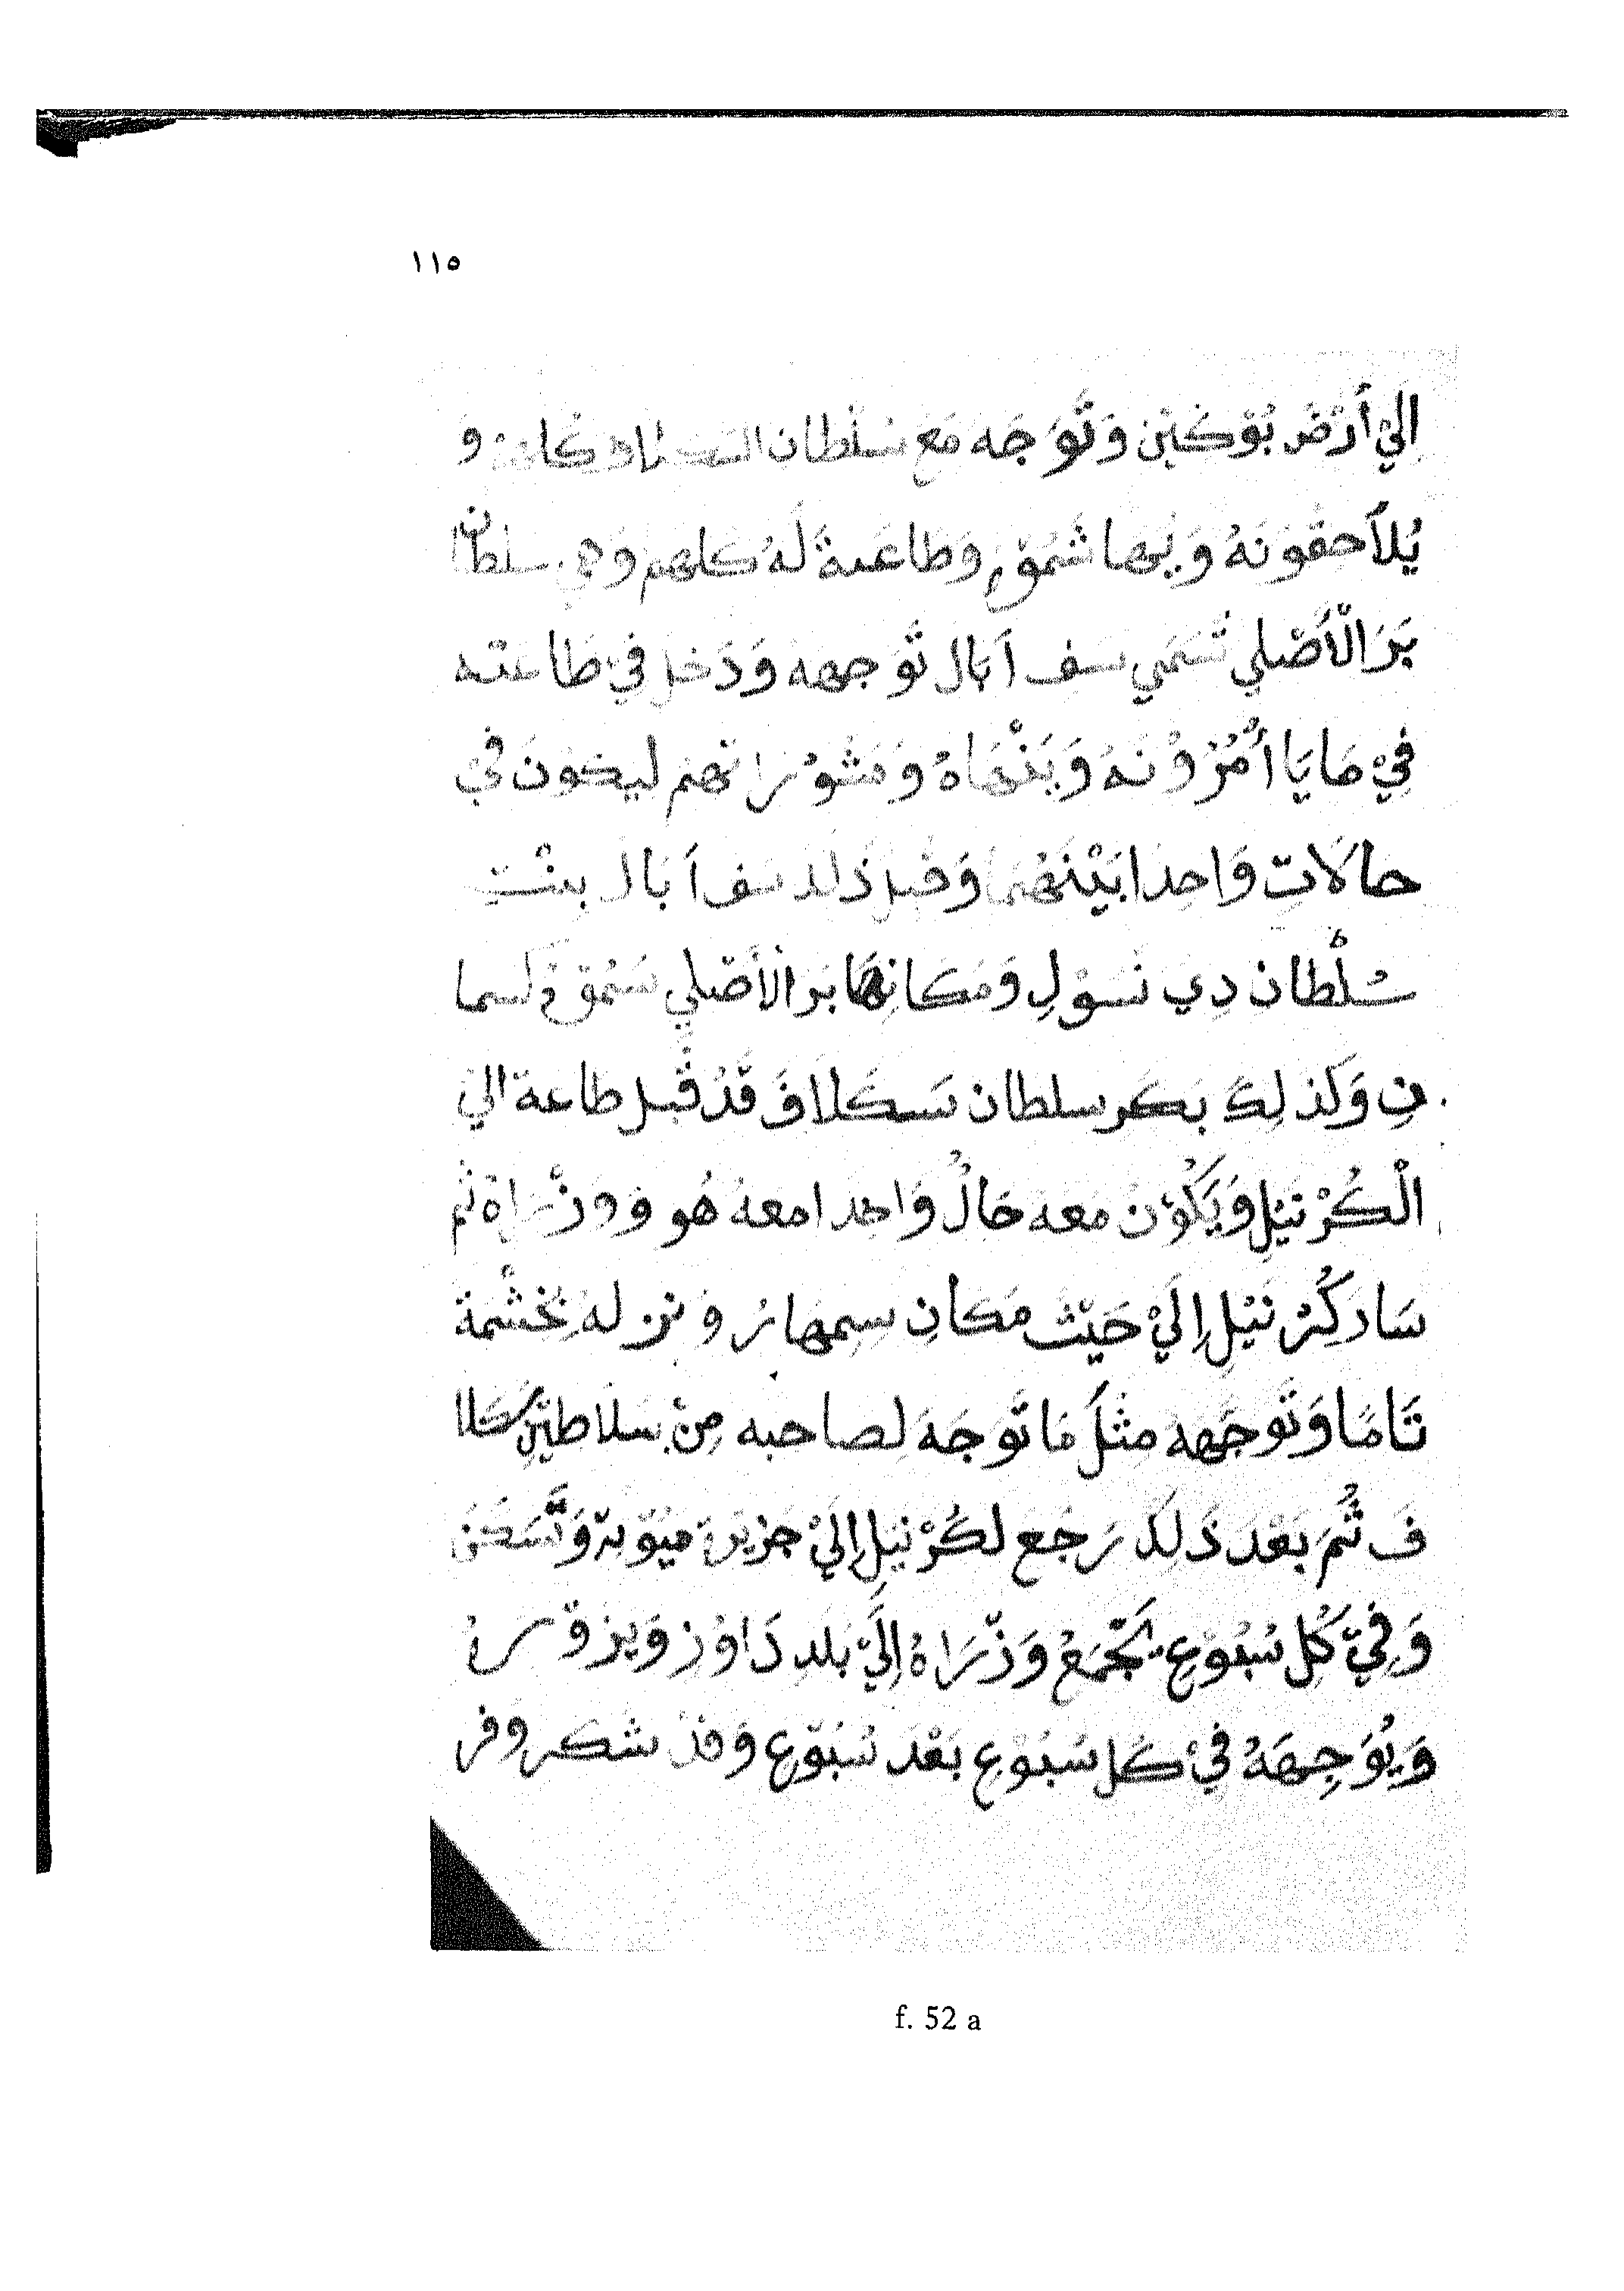 ١١٥
الِيْ أَرْضْ بُوْكَيْنْ وَتَّوَجَهَ مَعَ سُلْطَان و
يُلَاحقُونَهُ وَ وَطَاعَةً لَهُ كلهم سلطان
بَرَ الْأَصْلي تُسَمَي سف اَبَال تَوَجهه وَدَخل فيْ طَاعته
فِيْ مَا يَا أْمُرُوْنَهُ وَيَنْهَاهُ وَمَشُوْرَاتهم ليكونَ فيْ
حالَاتِ وَاحِدا بَيْنَهُمَا وَقبل ذَلكَ سف اَبَال بنْت
سُلْطَان دِي نسَوْلِ وَمَكَانِهَا بَرَ الأَصْلي سُمُوْ
نِ وَكَذلِكَ بَكَر سلطان سَكَلَافَ قَدْ قَبل طاعة الي
الْكُرْنَيْلِ وَيَكُوْن معه حَالُ وَاحدا معهُ هُو وَوزْرَاهُ ثُم
سَارَ كِرْنَيْلِ إِلَيْ حَيْثَ مَكَانِ سِمِهَارُ وَنزلهُ بِحَشْمَة
تَامًا وَتَوجَّهَهُ مثْلَ مَا تَوَجَهَ لصاحبه مِنْ سَلَاطيْنِ سَكَلا
فَ ثُمَ بَعْدَ ذَلكَ رَجَعَ لكُرْنَيْلِ إِلَيْ جَزيرة مَيُوْتة وَتَسَكَنَ
وَفِيْ كُلِ سُبُوْعِ يَجْمَعُ وَزَرَاهُ إِلَيْ بَلدِ دَاوُزِ وَيزوْرهُ
وَيُوَجِهَهُ فيْ كَل سُبُوْعِ بَعْدَ سُبُوْعِ وَقدْ شكر وفر
f. 52 a